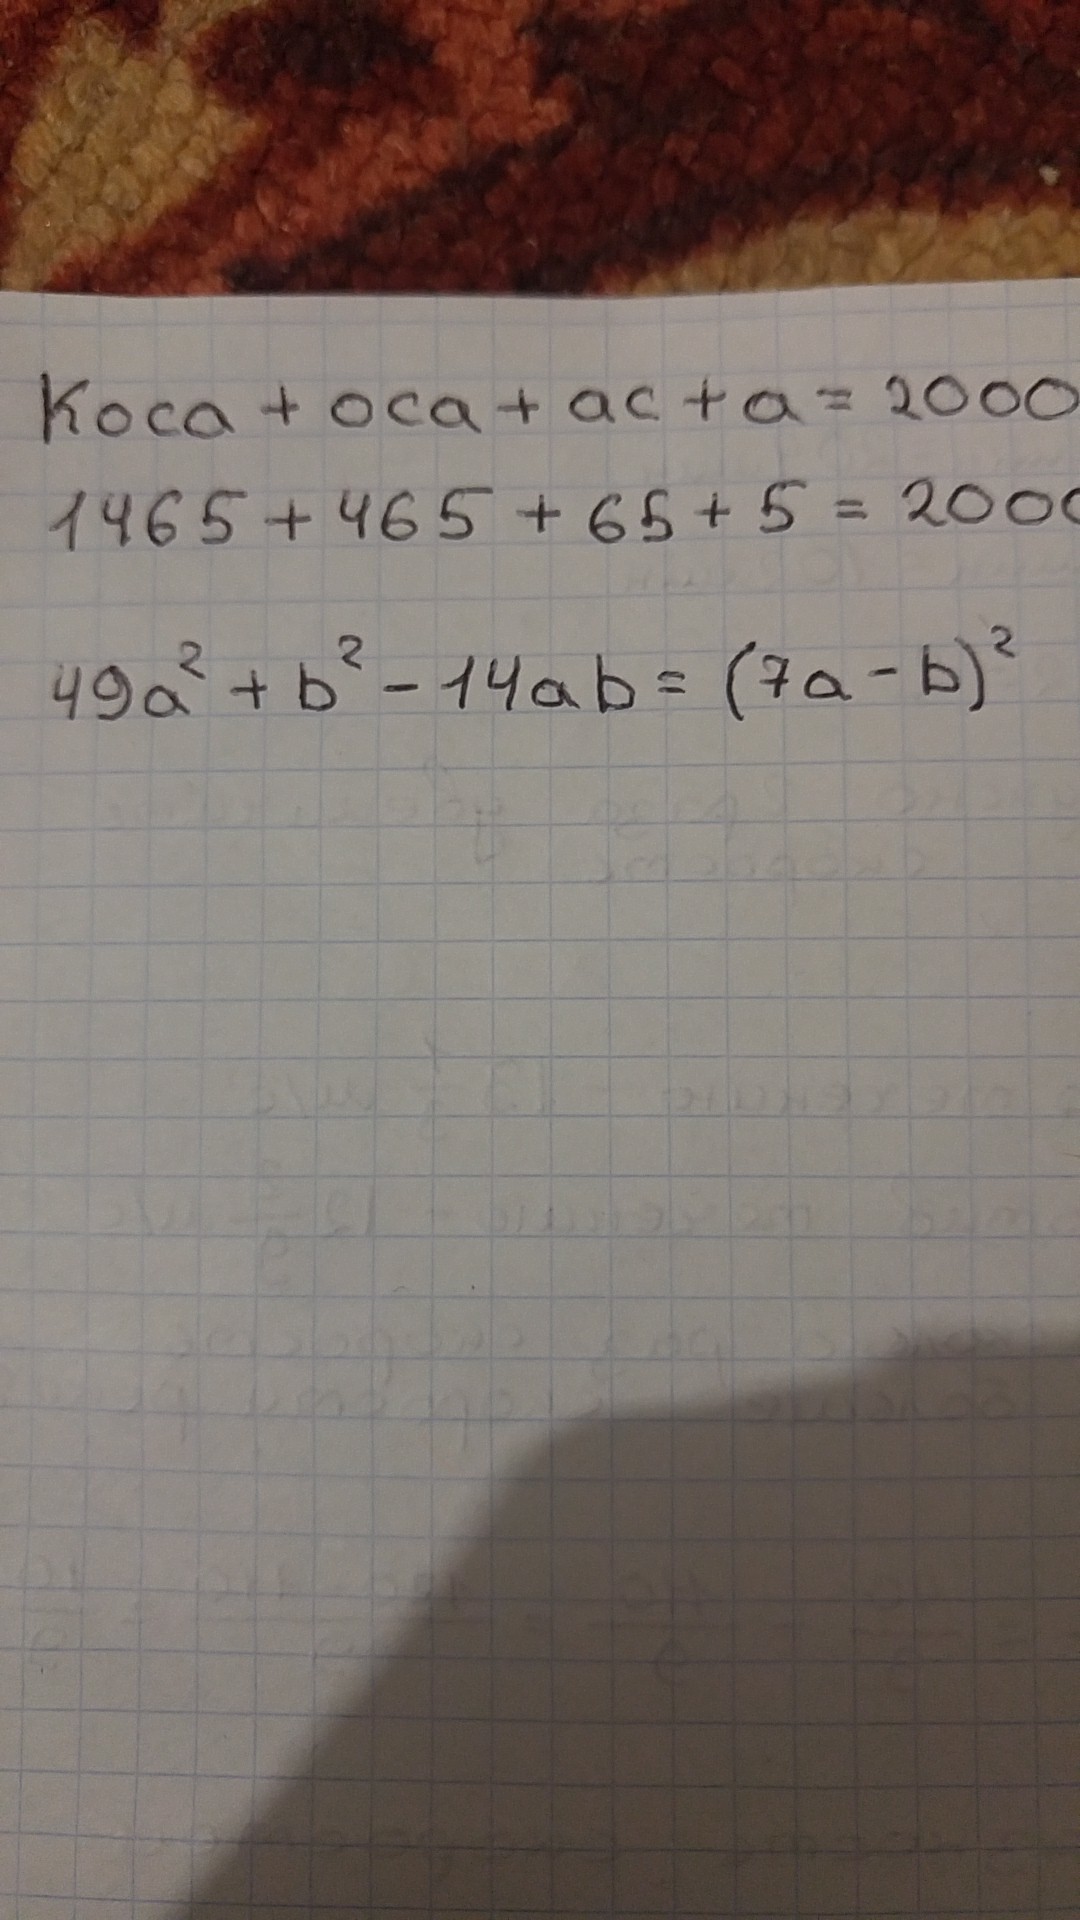 Коса + оса + ас + а = 2000
1465 + 465 + 65 + 5 = 2000
49a² + b² - 14ab = (7a - b)²